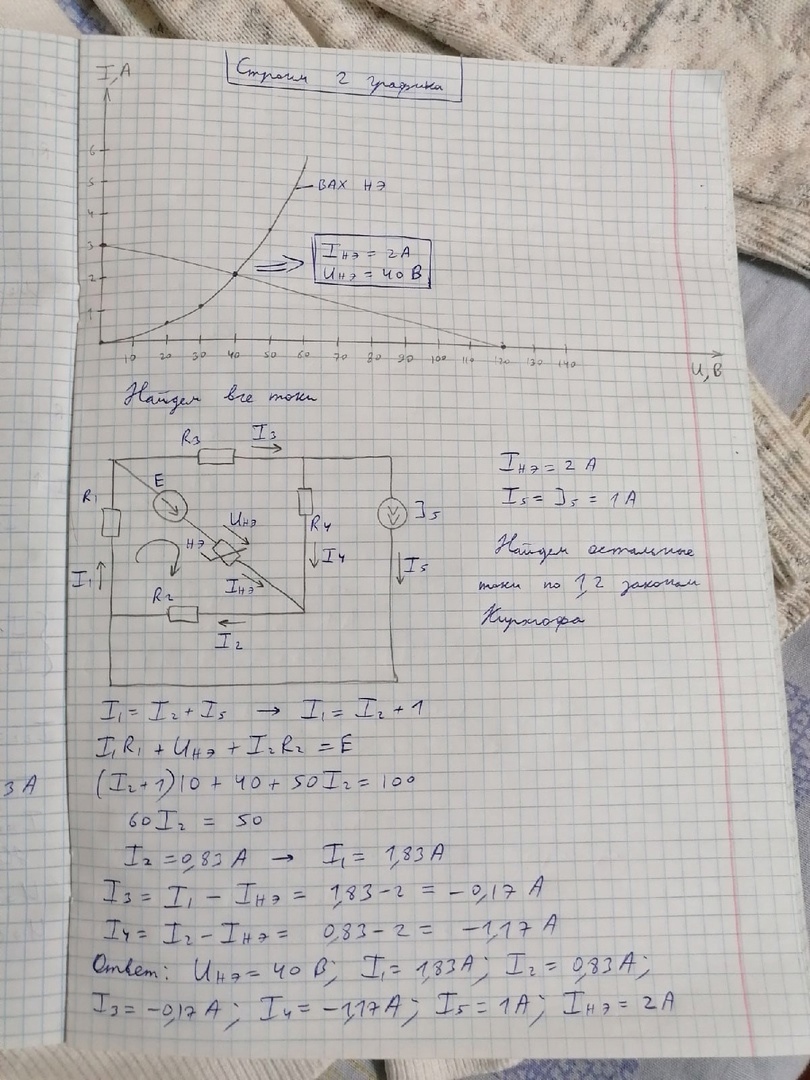 Строим 2 графика
I, A
6
5
4
3
2
1
ВАХ НЭ
Iнэ = 2А
Uнэ = 40 В
10 20 30 40 50 60 70 80 90 100 110 120 130 140
U, В
Найдем все токи
R3 I3
R1 E Uнэ R4 J5
НЭ I4 I5
I1 Iнэ
R2
I2
Iнэ = 2 А
I5 = J5 = 1 А
Найдем остальные
токи по 1,2 законам
Кирхгофа
I1 = I2 + I5 → I1 = I2 + 1
I1R1 + Uнэ + I2R2 = E
3 А
(I2+1)10 + 40 + 50I2 = 100
60I2 = 50
I2 = 0,83 А → I1 = 1,83 А
I3 = I1 - Iнэ = 1,83 - 2 = -0,17 А
I4 = I2 - Iнэ = 0,83 - 2 = -1,17 А
Ответ: Uнэ = 40 В; I1 = 1,83А; I2 = 0,83А;
I3 = -0,17А; I4 = -1,17А; I5 = 1А; Iнэ = 2А